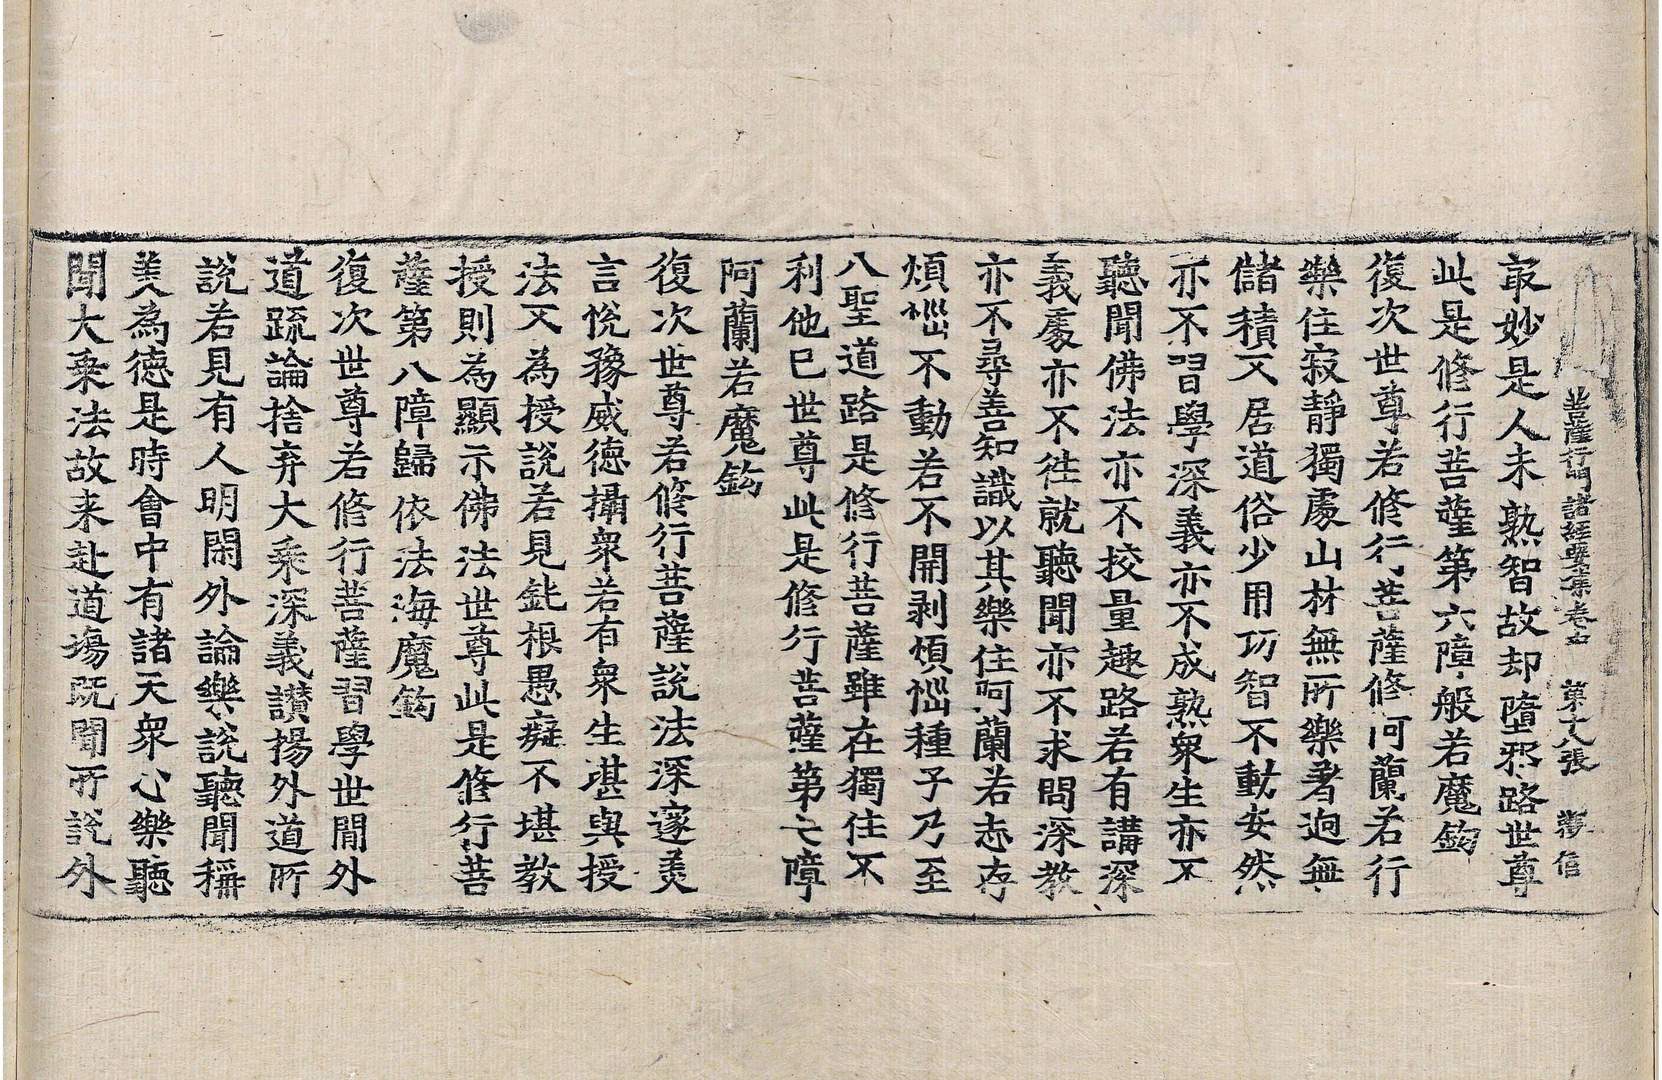 菩薩行門諸經要集卷中 第十八張 雙信
㝡妙是人未熟智故却墮邪路世尊
此是修行菩薩第六障般若魔鈎
復次世尊若修行菩薩修阿蘭若行
樂住寂靜獨處山林無所樂著逈無
儲積又居道俗少用功智不動安然
亦不習學深義亦不成熟衆生亦不
聽聞佛法亦不挍量趣路若有講深
義處亦不徃就聽聞亦不求問深教
亦不尋善知識以其樂住阿蘭若志存
煩惱不動若不開剥煩惱種子乃至
八聖道路是修行菩薩雖在獨住不
利他已世尊此是修行菩薩第七障
阿蘭若魔鈎
復次世尊若修行菩薩說法深邃羙
言悅豫威德攝衆若有衆生堪與授
法又為授說若見鈍根愚癡不堪教
授則為顯示佛法世尊此是修行菩
薩第八障歸依法海魔鈎
復次世尊若修行菩薩習學世間外
道䟽論捨弃大乗深義讃揚外道所
說若見有人明閑外論樂說聽聞稱
羙為德是時會中有諸天衆心樂聽
聞大乗法故来赴道塲既聞所說外